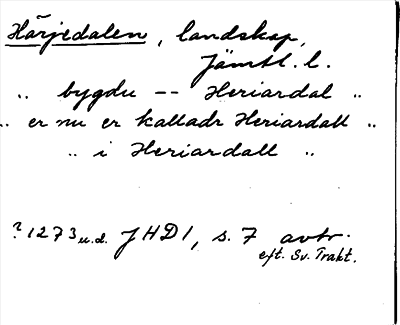 Härjedalen, landskap,
Jämtl. l.
„ bygdu -- Heriardal „
„ er nu er kalladr Heriardall „
„ i Heriardall „
? 1273 u.d. JHD I, s. 7 avtr.
eft. Sv. Trakt.